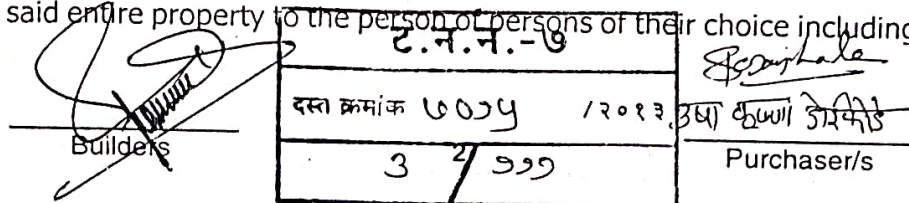 said entire property to the person or persons of their choice including
ट.न.न.-७
दस्त क्रमांक ७०२५ /२०१३
उषा कृष्णा
3 2/ ९९९
Builders
Purchaser/s